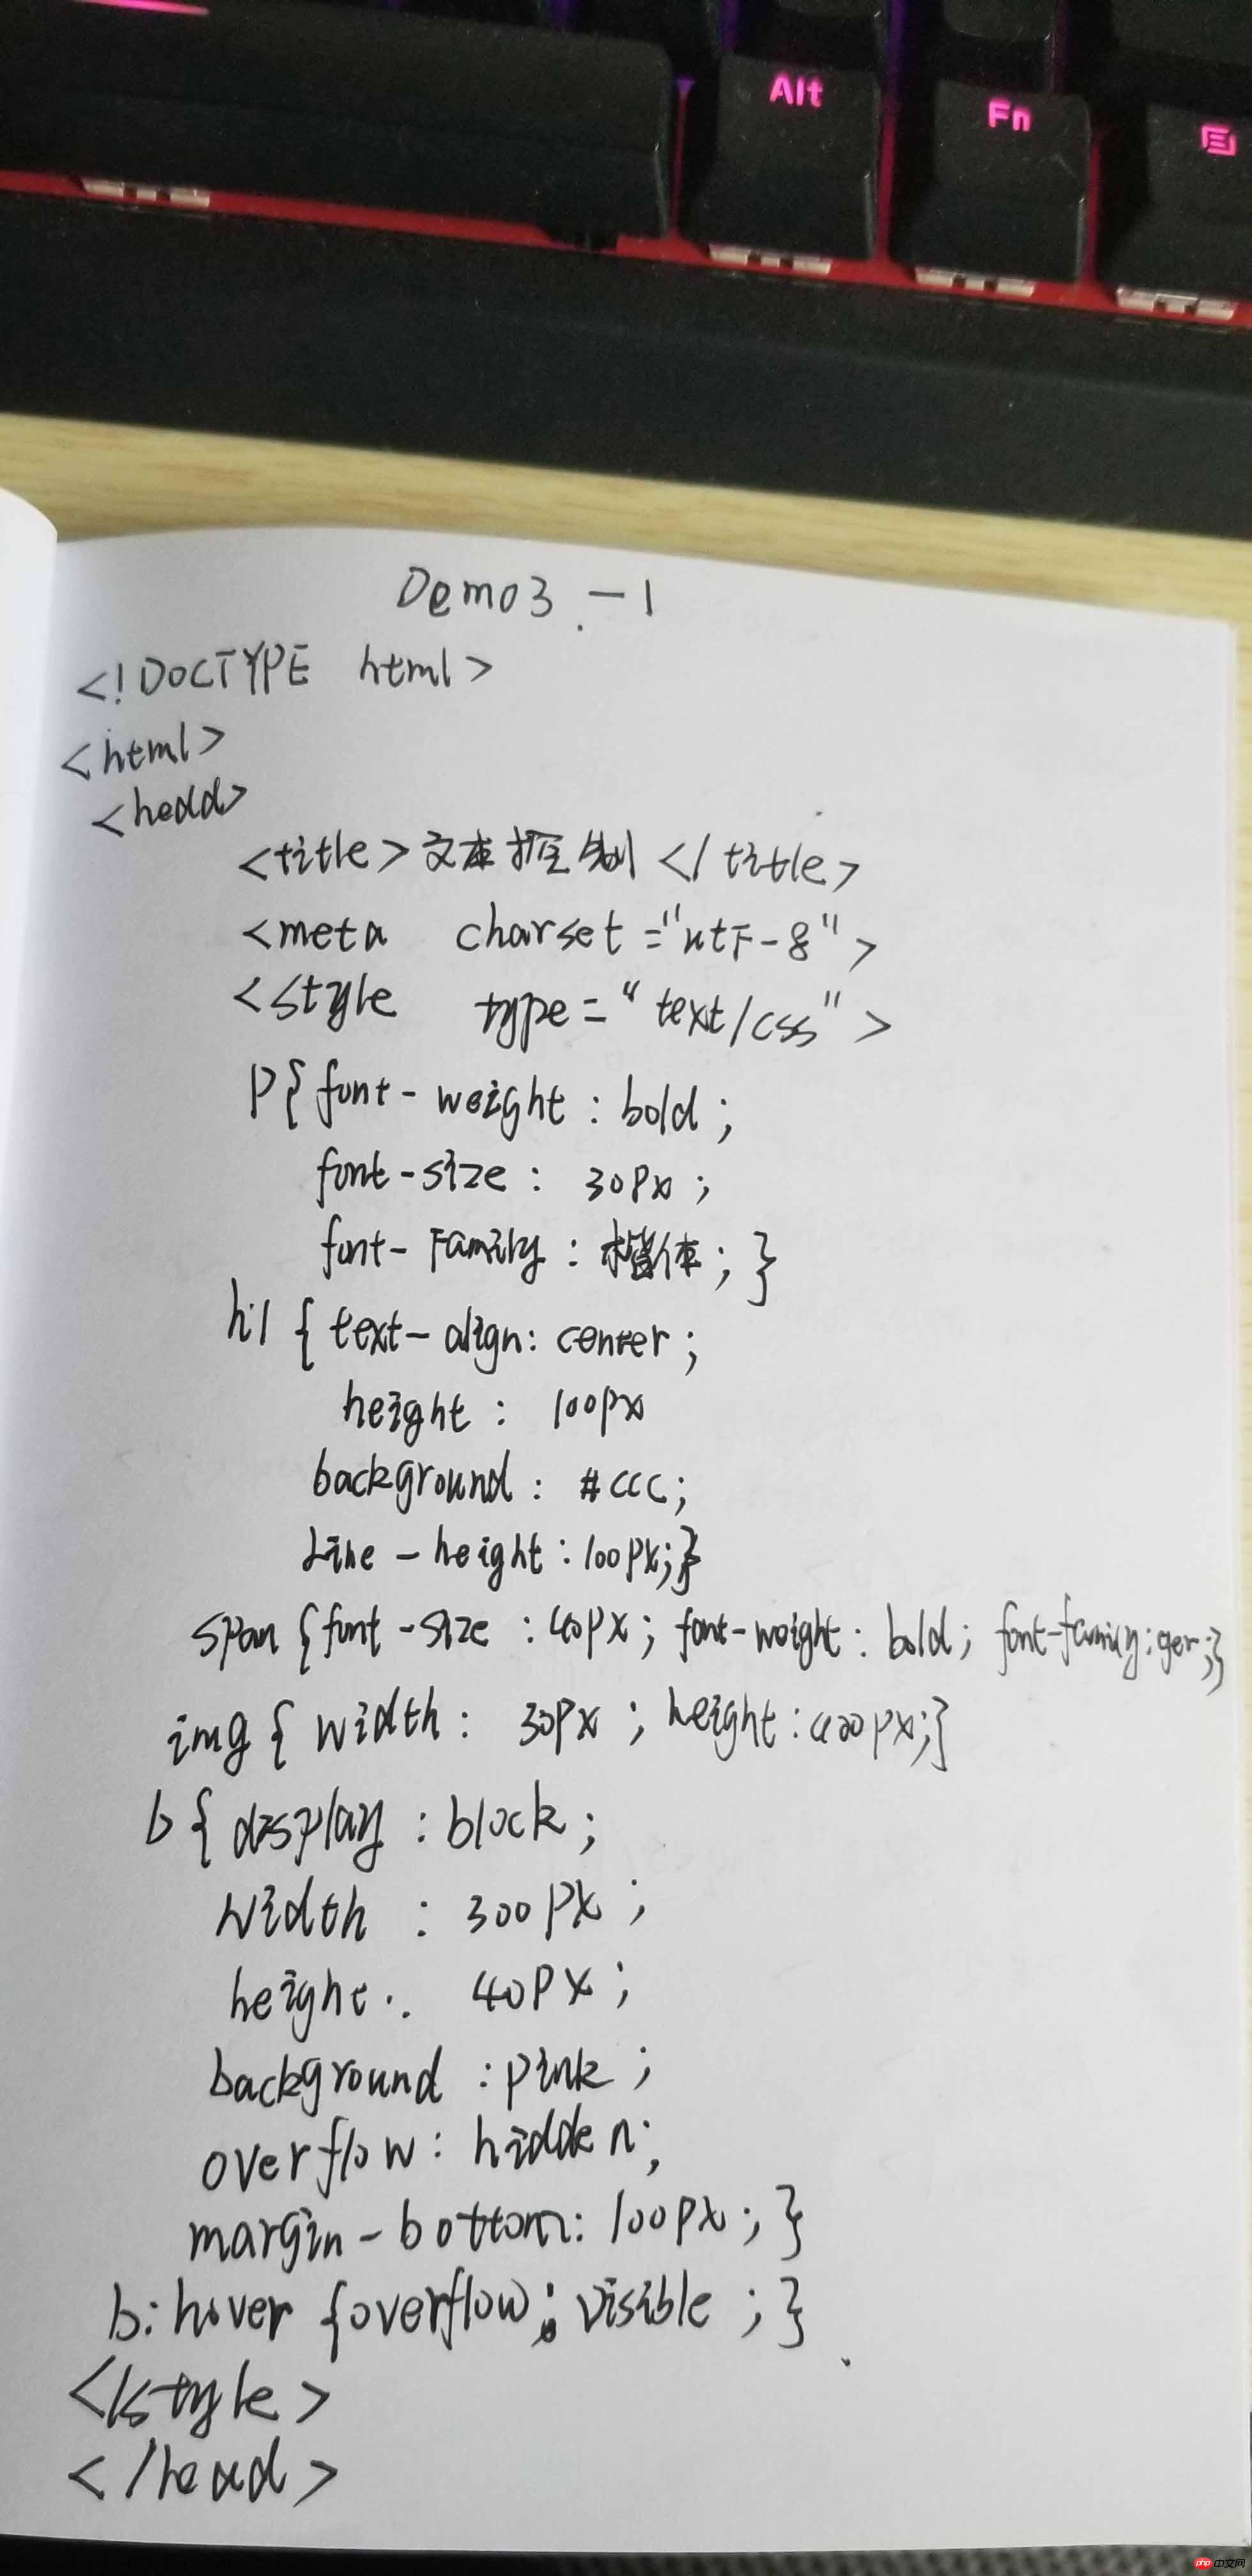 Alt
Fn
Demo3 -1
<!DOCTYPE html>
<html>
<head>
<title>文本控制</title>
<meta charset="utf-8">
<style type="text/css">
p{font-weight:bold;
font-size: 30px;
font-Family:楷体;}
h1{text-align:center;
height: 100px
background: #ccc;
Line-height:100px;}
span{font-size:40px; font-weight:bold; font-family:ger;}
img{width: 30px; height:400px;}
b{display:block;
width: 300px;
height: 40px;
background:pink;
overflow:hidden;
margin-bottom:100px;}
b:hover{overflow:visible;}
</style>
</head>
php 中文网